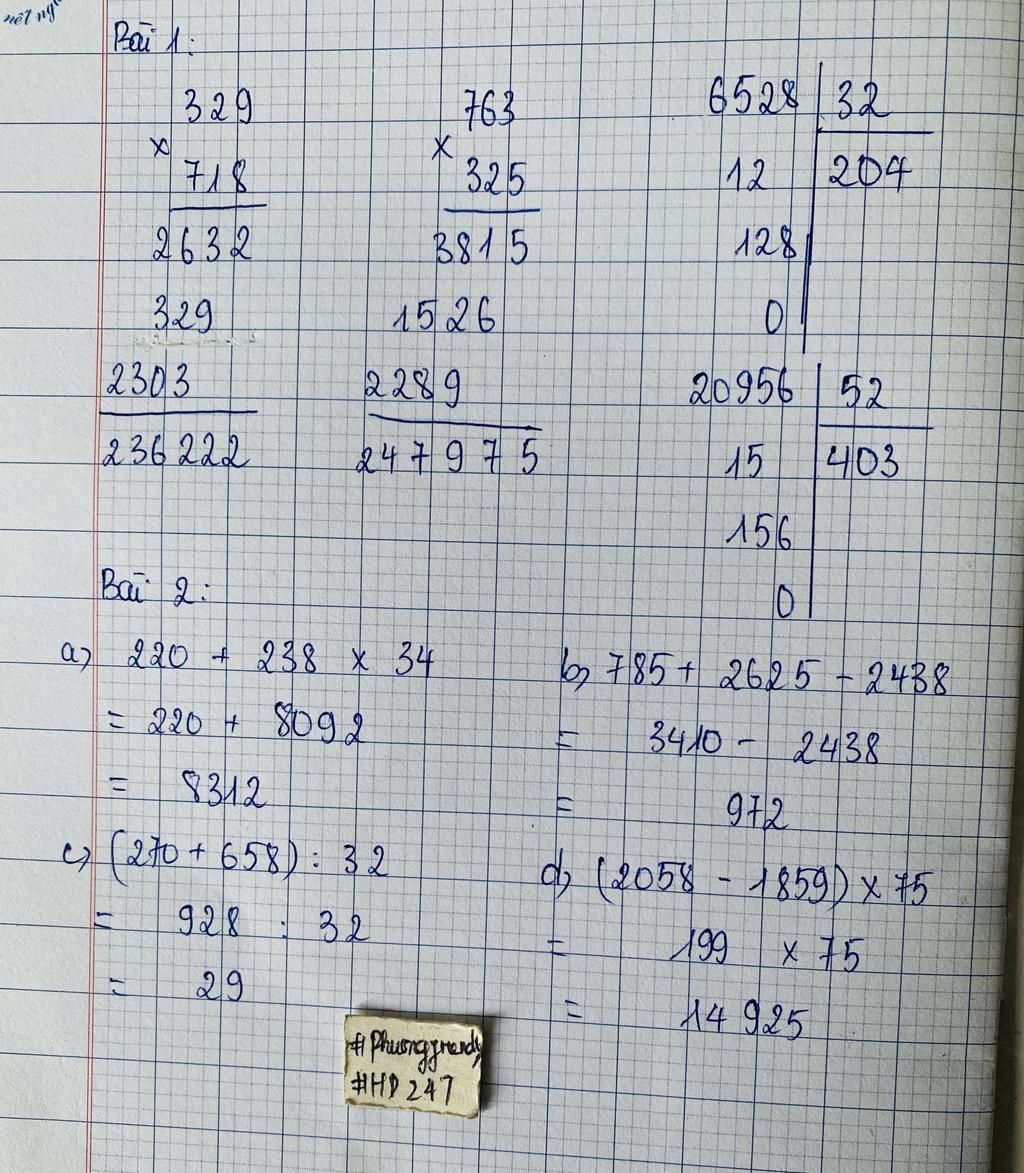 nét ng
Bài 1:
329
x
718
2632
329
2303
236 222
763
x
325
3815
1526
2289
247 975
6528 32
12 204
128
0
20956 52
15 403
156
0
Bài 2:
a) 220 + 238 x 34
= 220 + 8092
= 8312
b) 785 + 2625 - 2438
= 3410 - 2438
= 972
c) (270 + 658) : 32
= 928 : 32
= 29
d) (2058 - 1859) x 75
= 199 x 75
= 14 925
#HD 247